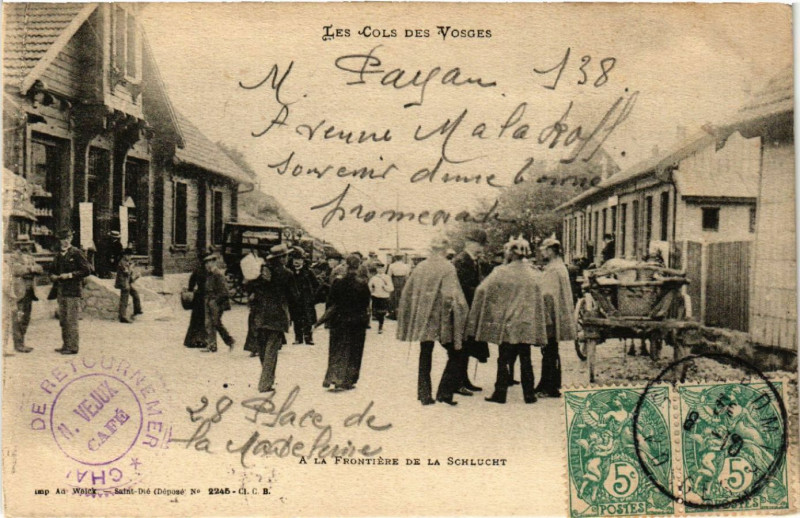 LES COLS DES VOSGES
M. Payan 138
Avenue Malakoff
Souvenir d'une bonne
promenade
28 Place de
la Madeleine
A LA FRONTIÈRE DE LA SCHLUCHT
DE RETOURNEMER
VEJUX
CAFÉ
CHA
Imp Ad Weick - Saint-Dié (Déposé No 2245 - Cl. C. B.
5c
5c
POSTES
POSTES